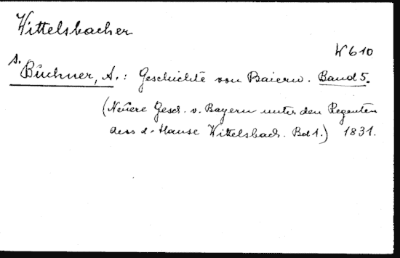 Wittelsbacher
W 610
s. Buchner, A.: Geschichte von Baiern. Band 5.
(Neuere Gesch. v. Bayern unter den Regenten
aus d. Hause Wittelsbach. Bd 1.) 1831.